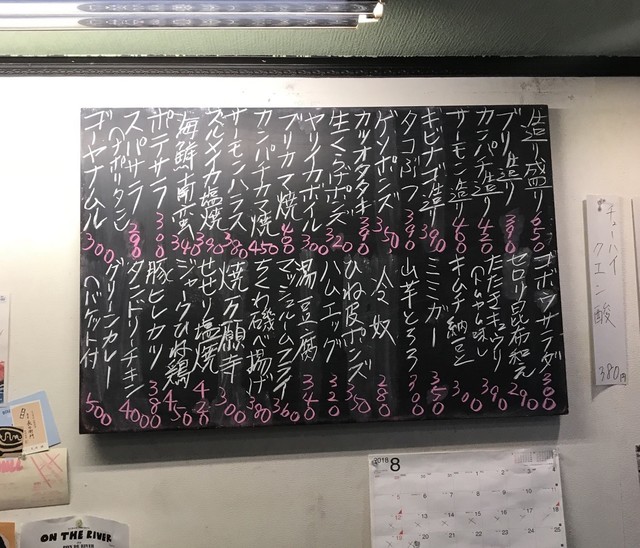 造り盛り 650
ブリ造り 390
カンパチ造り 450
サーモン造り 480
キビナゴ造り 390
タコぶつ 390
ゲソポンズ 350
カツオタタキ 390
生くらげポンズ 320
ヤリイカボイル 300
ブリカマ焼 480
カンパチカマ焼 450
サーモンハラス 380
スルメイカ塩焼 390
海鮮南蛮 340
ポテサラ 300
スパサラ 290
(ナポリタン)
ゴーヤナムル 300
ゴボウサラダ 300
セロリ昆布和え 290
たたきキュウリ 390
キムチ納豆 300
ミミガー 350
山芋とろろ 300
冷奴 280
ひね皮ポンズ 350
ハムエッグ 320
湯豆腐 340
マッシュルームフライ 360
ちくわ磯べ揚げ 380
焼万願寺 300
せせり塩焼 420
ジャークひね鶏 450
豚ヒレカツ 380
タンドリーチキン 400
グリーンカレー 500
(バケット付)
チューハイ
クエン酸
380円
2018 8
ON THE RIVER